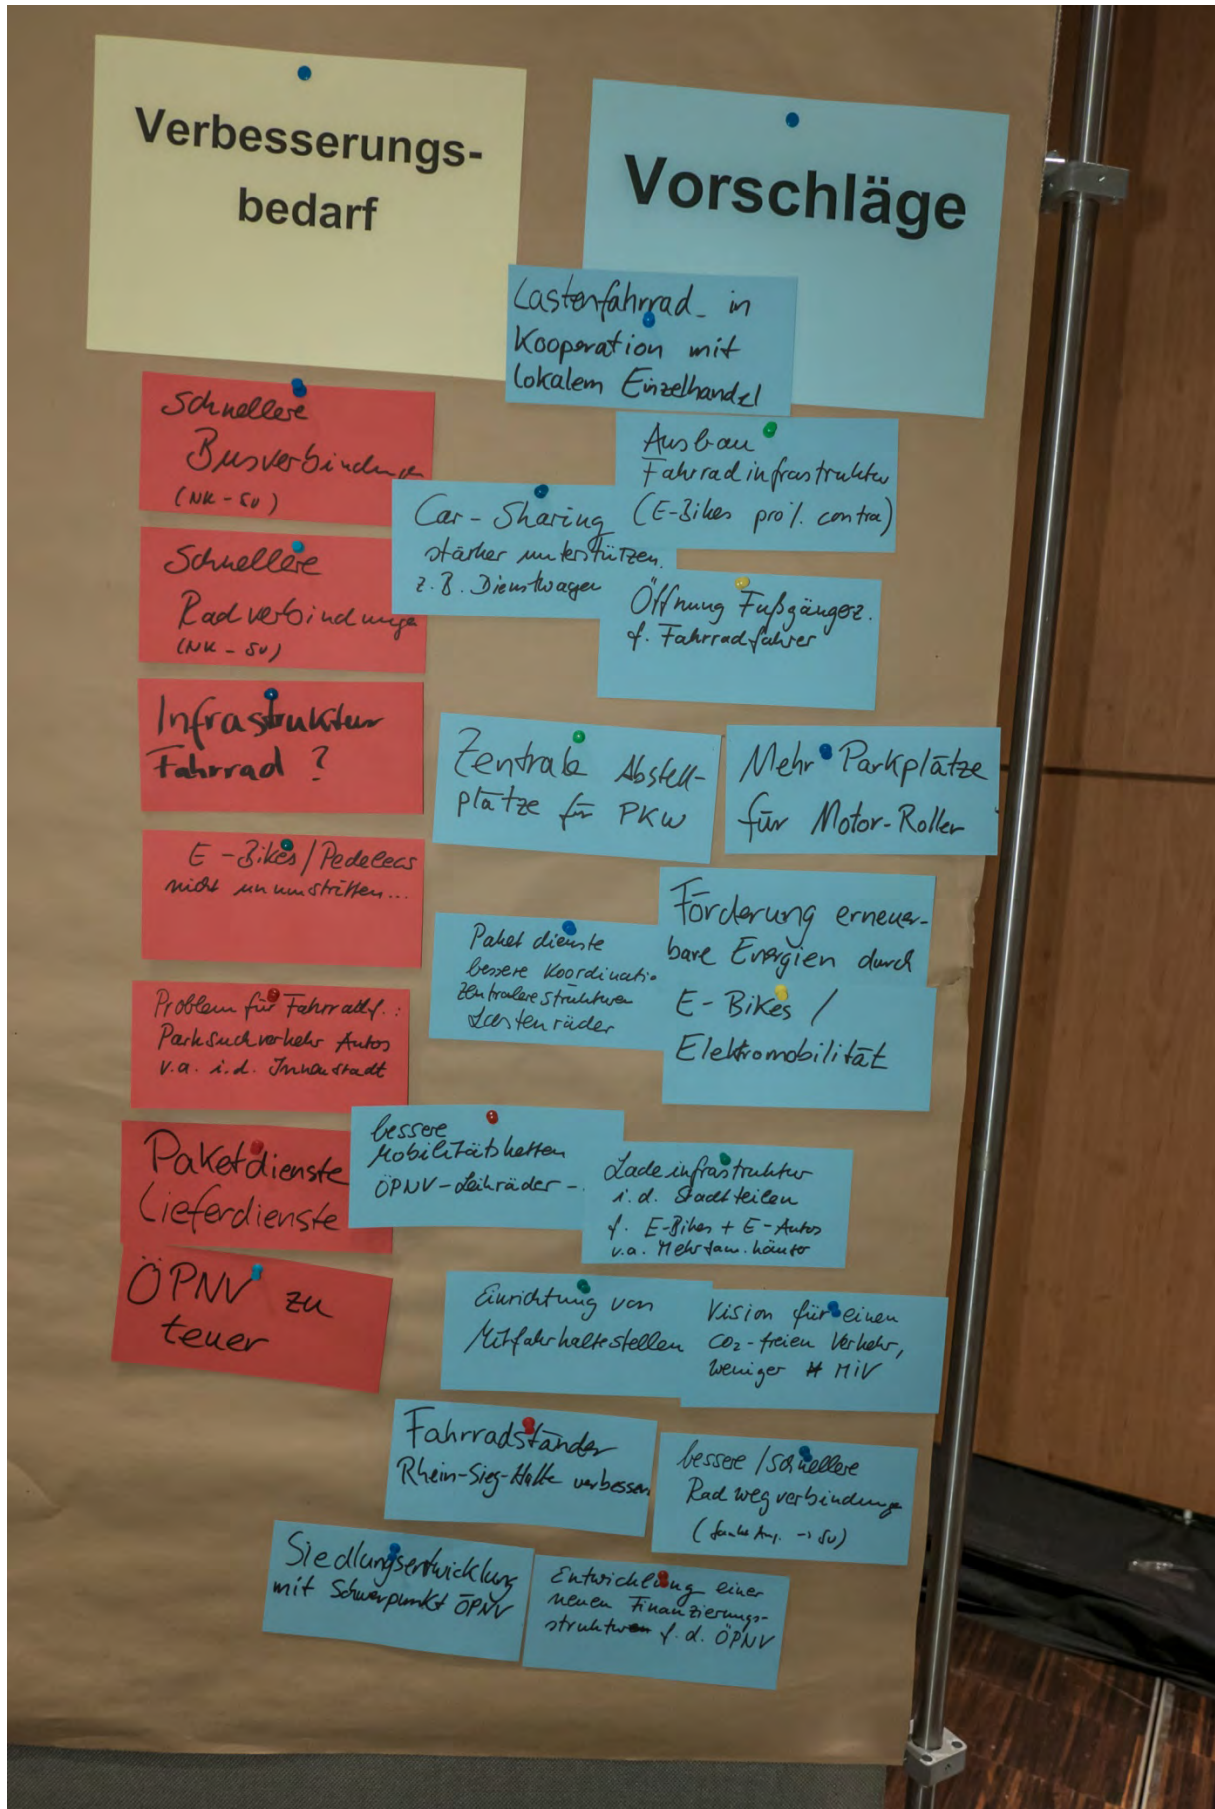 Verbesserungs-
bedarf
Schnellere
Busverbindungen
(NK - SU)
Schnellere
Radverbindunge
(NK - SU)
Infrastruktur
Fahrrad ?
E-Bikes/Pedelecs
nicht unumstritten...
Problem für Fahrradf.:
Parksuchverkehr Autos
v.a. i.d. Innenstadt
Paketdienste
Lieferdienste
ÖPNV zu
teuer
Vorschläge
Lastenfahrrad_ in
Kooperation mit
lokalem Einzelhandel
Ausbau
Fahrradinfrastruktur
(E-Bikes pro/. contra)
Car-Sharing
stärker unterstützen.
z.B. Dienstwagen
Öffnung Fußgängerz.
f. Fahrradfahrer
Zentrale Abstell-
plätze für PKW
Mehr Parkplätze
für Motor-Roller
Förderung erneuer-
bare Energien durch
E-Bikes /
Elektromobilität
Paketdienste
bessere Koordinatio
zentralere Strukturen
Lastenräder
bessere
Mobilitätsketten
ÖPNV-Leihräder-
Ladeinfrastruktur
i.d. Stadtteilen
f. E-Bikes + E-Autos
v.a. Mehrfam.häuser
Einrichtung von
Mitfahrhaltestellen
Vision für einen
CO2-freien Verkehr,
weniger MIV
Fahrradständer
Rhein-Sieg-Halle verbessern
bessere/schnellere
Radwegverbindunge
(Sankt Aug. -> SU)
Siedlungsentwicklung
mit Schwerpunkt ÖPNV
Entwicklung einer
neuen Finanzierungs-
struktur f.d. ÖPNV